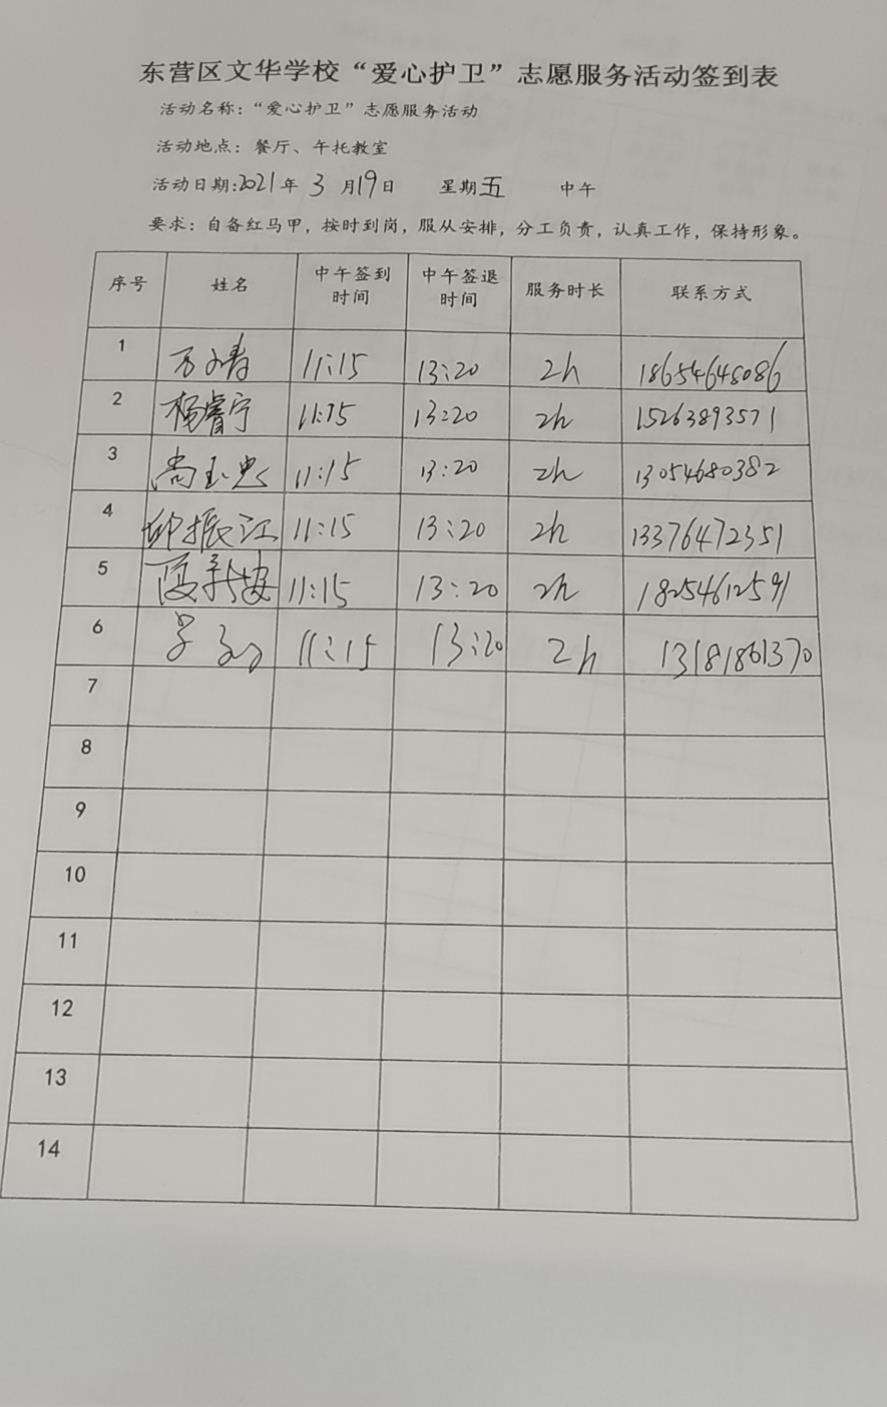 东营区文华学校“爱心护卫”志愿服务活动签到表
活动名称：“爱心护卫”志愿服务活动
活动地点：餐厅、午托教室
活动日期：2021年 3 月19日 星期五 中午
要求：自备红马甲，按时到岗，服从安排，分工负责，认真工作，保持形象。
序号 姓名 中午签到时间 中午签退时间 服务时长 联系方式
1 11:15 13:20 2h 18654648086
2 杨睿宁 11:15 13:20 2h 15263893571
3 尚玉忠 11:15 13:20 2h 13054680382
4 振江 11:15 13:20 2h 13376472351
5 11:15 13:20 2h 18254612591
6 11:15 13:20 2h 13181861370
7
8
9
10
11
12
13
14